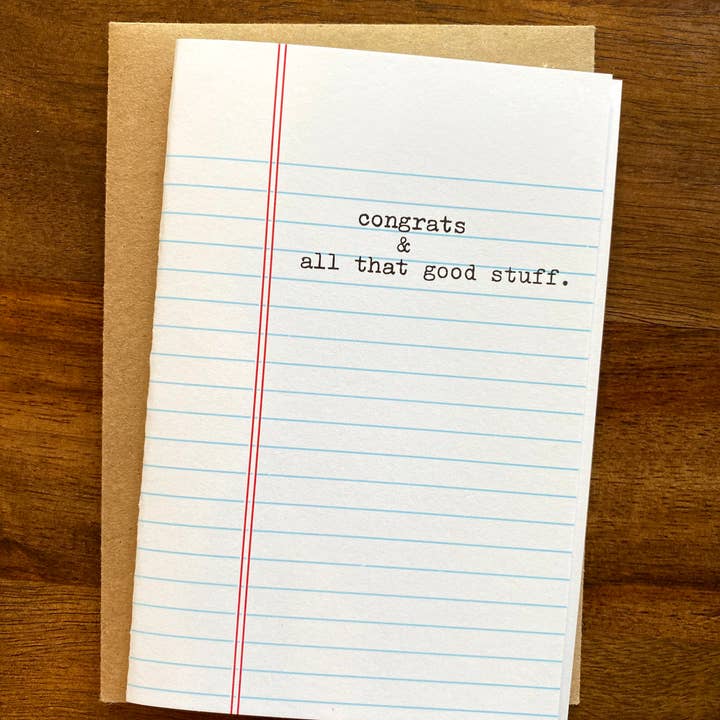 congrats
&
all that good stuff.